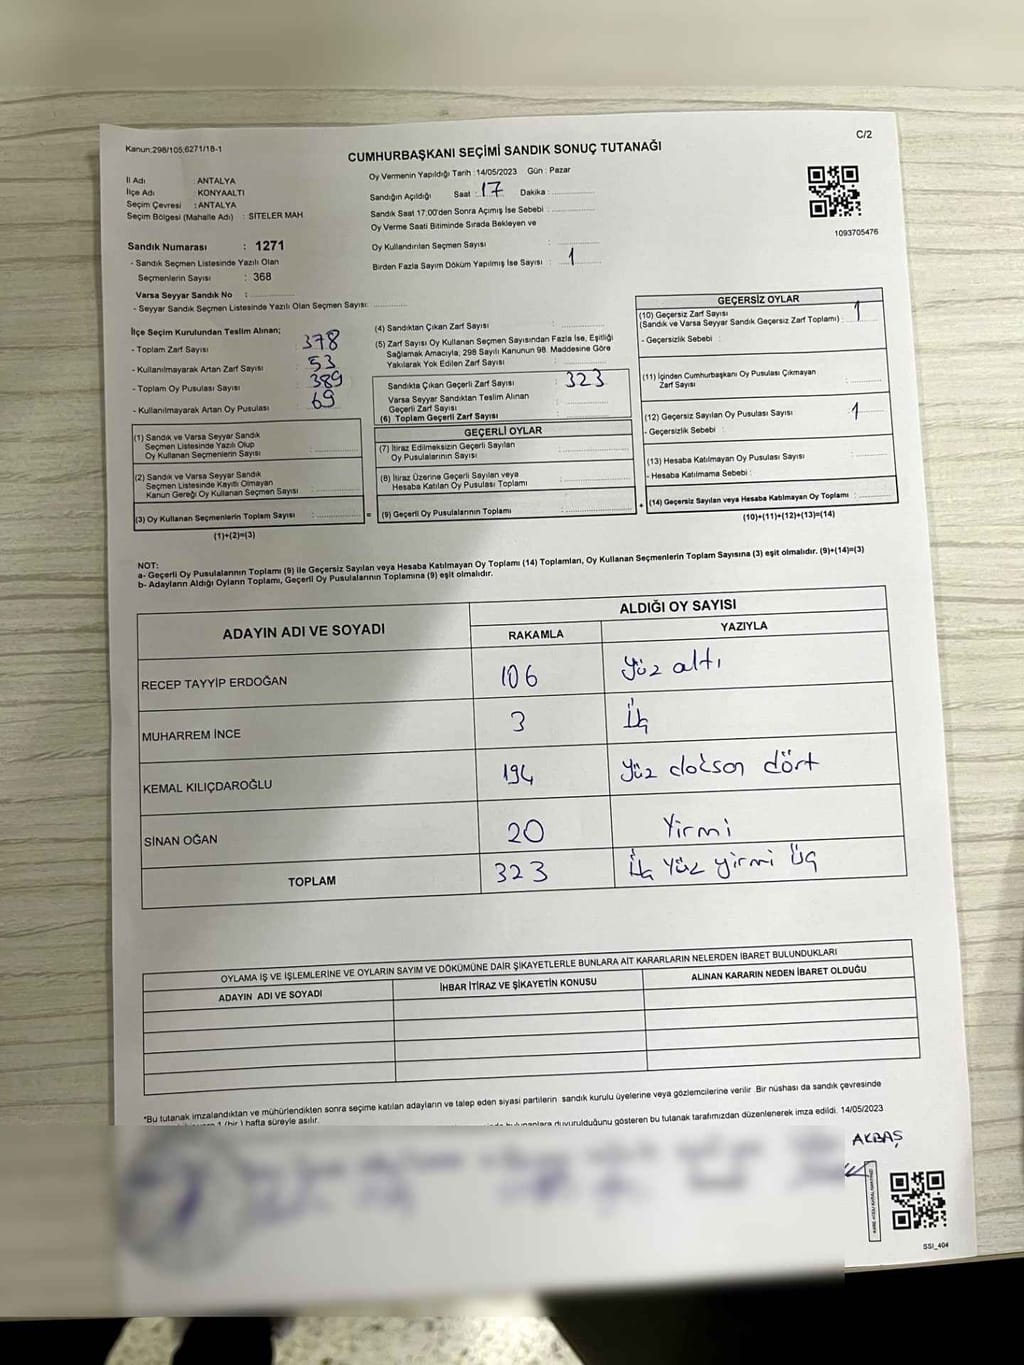 Kanun:298/105,6271/18-1
C/2
CUMHURBAŞKANI SEÇİMİ SANDIK SONUÇ TUTANAĞI
Oy Vermenin Yapıldığı Tarih : 14/05/2023 Gün : Pazar
İl Adı : ANTALYA
İlçe Adı : KONYAALTI
Seçim Çevresi : ANTALYA
Seçim Bölgesi (Mahalle Adı) : SİTELER MAH
Sandığın Açıldığı Saat : 17 Dakika :
Sandık Saat 17.00'den Sonra Açımış İse Sebebi :
Oy Verme Saati Bitiminde Sırada Bekleyen ve
Oy Kullandırılan Seçmen Sayısı :
Birden Fazla Sayım Döküm Yapılmış İse Sayısı : 1
1093705476
Sandık Numarası : 1271
- Sandık Seçmen Listesinde Yazılı Olan
Seçmenlerin Sayısı : 368
Varsa Seyyar Sandık No :
- Seyyar Sandık Seçmen Listesinde Yazılı Olan Seçmen Sayısı:
İlçe Seçim Kurulundan Teslim Alınan;
- Toplam Zarf Sayısı 378
- Kullanılmayarak Artan Zarf Sayısı 53
- Toplam Oy Pusulası Sayısı 389
- Kullanılmayarak Artan Oy Pusulası 69
(1) Sandık ve Varsa Seyyar Sandık
Seçmen Listesinde Yazılı Olup
Oy Kullanan Seçmenlerin Sayısı :
(2) Sandık ve Varsa Seyyar Sandık
Seçmen Listesinde Kayıtlı Olmayan
Kanun Gereği Oy Kullanan Seçmen Sayısı :
(3) Oy Kullanan Seçmenlerin Toplam Sayısı : =
(1)+(2)=(3)
(4) Sandıktan Çıkan Zarf Sayısı :
(5) Zarf Sayısı Oy Kullanan Seçmen Sayısından Fazla İse, Eşitliği
Sağlamak Amacıyla, 298 Sayılı Kanunun 98. Maddesine Göre
Yakılarak Yok Edilen Zarf Sayısı :
Sandıkta Çıkan Geçerli Zarf Sayısı : 323
Varsa Seyyar Sandıktan Teslim Alınan
Geçerli Zarf Sayısı :
(6) Toplam Geçerli Zarf Sayısı :
GEÇERLİ OYLAR
(7) İtiraz Edilmeksizin Geçerli Sayılan
Oy Pusulalarının Sayısı :
(8) İtiraz Üzerine Geçerli Sayılan veya
Hesaba Katılan Oy Pusulası Toplamı :
(9) Geçerli Oy Pusulalarının Toplamı : +
GEÇERSİZ OYLAR
(10) Geçersiz Zarf Sayısı
(Sandık ve Varsa Seyyar Sandık Geçersiz Zarf Toplamı) : 1
- Geçersizlik Sebebi :
(11) İçinden Cumhurbaşkanı Oy Pusulası Çıkmayan
Zarf Sayısı :
(12) Geçersiz Sayılan Oy Pusulası Sayısı : 1
- Geçersizlik Sebebi :
(13) Hesaba Katılmayan Oy Pusulası Sayısı :
- Hesaba Katılmama Sebebi :
(14) Geçersiz Sayılan veya Hesaba Katılmayan Oy Toplamı :
(10)+(11)+(12)+(13)=(14)
NOT:
a- Geçerli Oy Pusulalarının Toplamı (9) ile Geçersiz Sayılan veya Hesaba Katılmayan Oy Toplamı (14) Toplamları, Oy Kullanan Seçmenlerin Toplam Sayısına (3) eşit olmalıdır. (9)+(14)=(3)
b- Adayların Aldığı Oyların Toplamı, Geçerli Oy Pusulalarının Toplamına (9) eşit olmalıdır.
ADAYIN ADI VE SOYADI ALDIĞI OY SAYISI
RAKAMLA YAZIYLA
RECEP TAYYİP ERDOĞAN 106 Yüz altı
MUHARREM İNCE 3 Üç
KEMAL KILIÇDAROĞLU 194 Yüz doksan dört
SİNAN OĞAN 20 Yirmi
TOPLAM 323 Üç Yüz yirmi üç
OYLAMA İŞ VE İŞLEMLERİNE VE OYLARIN SAYIM VE DÖKÜMÜNE DAİR ŞİKAYETLERLE BUNLARA AİT KARARLARIN NELERDEN İBARET BULUNDUKLARI
ADAYIN ADI VE SOYADI İHBAR İTİRAZ VE ŞİKAYETİN KONUSU ALINAN KARARIN NEDEN İBARET OLDUĞU
*Bu tutanak imzalandıktan ve mühürlendikten sonra seçime katılan adayların ve talep eden siyasi partilerin sandık kurulu üyelerine veya gözlemcilerine verilir .Bir nüshası da sandık çevresinde
1 (bir ) hafta süreyle asılır.
duyurulduğunu gösteren bu tutanak tarafımızdan düzenlenerek imza edildi. 14/05/2023
AKBAŞ
SSI_404